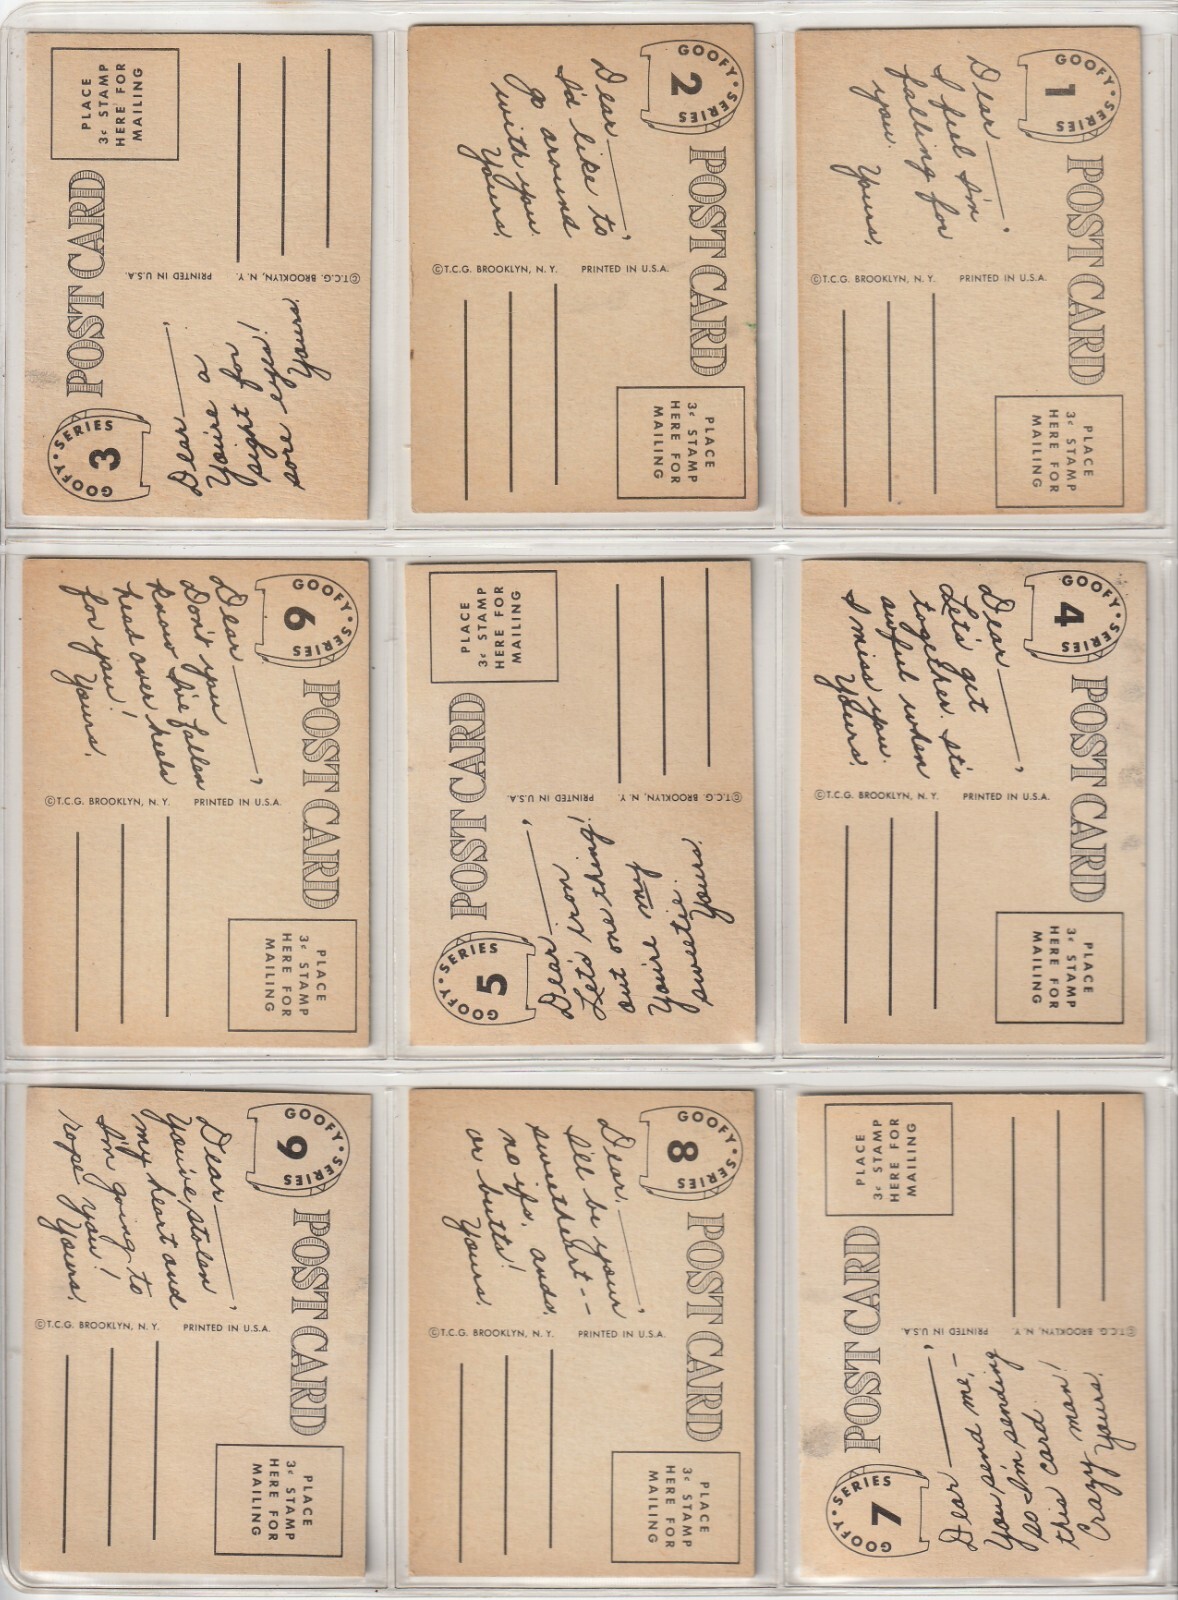 PLACE
3¢ STAMP
HERE FOR
MAILING
POST CARD
GOOFY • SERIES
3
Dear ,
You're a
sight for
sore eyes!
Yours,
©T.C.G. BROOKLYN, N. Y. PRINTED IN U.S.A.
GOOFY • SERIES
2
POST CARD
PLACE
3¢ STAMP
HERE FOR
MAILING
Dear ,
I'd like to
go around
with you.
Yours,
©T.C.G. BROOKLYN, N. Y. PRINTED IN U.S.A.
GOOFY • SERIES
1
POST CARD
PLACE
3¢ STAMP
HERE FOR
MAILING
Dear ,
I feel I'm
falling for
you.
Yours,
©T.C.G. BROOKLYN, N. Y. PRINTED IN U.S.A.
GOOFY • SERIES
6
POST CARD
PLACE
3¢ STAMP
HERE FOR
MAILING
Dear ,
Don't you
know I've fallen
head over heels
for you!
Yours,
©T.C.G. BROOKLYN, N. Y. PRINTED IN U.S.A.
PLACE
3¢ STAMP
HERE FOR
MAILING
POST CARD
GOOFY • SERIES
5
Dear ,
Let's iron
out one thing!
You're my
sweetie.
Yours,
©T.C.G. BROOKLYN, N. Y. PRINTED IN U.S.A.
GOOFY • SERIES
4
POST CARD
PLACE
3¢ STAMP
HERE FOR
MAILING
Dear ,
Let's get
together. It's
awful when
I miss you.
Yours,
©T.C.G. BROOKLYN, N. Y. PRINTED IN U.S.A.
GOOFY • SERIES
9
POST CARD
PLACE
3¢ STAMP
HERE FOR
MAILING
Dear ,
You've stolen
my heart and
I'm going to
rope you!
Yours,
©T.C.G. BROOKLYN, N. Y. PRINTED IN U.S.A.
GOOFY • SERIES
8
POST CARD
PLACE
3¢ STAMP
HERE FOR
MAILING
Dear, ,
I'll be your
sweetheart--
no ifs, ands,
or butts!
Yours,
©T.C.G. BROOKLYN, N. Y. PRINTED IN U.S.A.
PLACE
3¢ STAMP
HERE FOR
MAILING
POST CARD
GOOFY • SERIES
7
Dear ,
You send me,-
so I'm sending
this card.
Crazy man!
Yours,
©T.C.G. BROOKLYN, N. Y. PRINTED IN U.S.A.